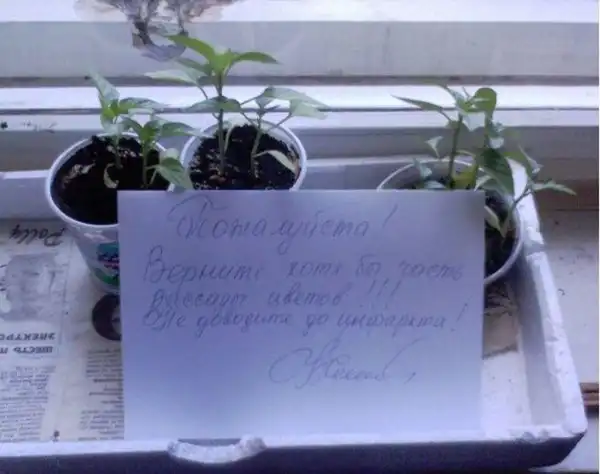 Пожалуйста!
Верните хотя бы часть
рассады цветов!!!
Не доводите до инфаркта!
Polly
ШЕСТЬ
ЭЛЕКТРО